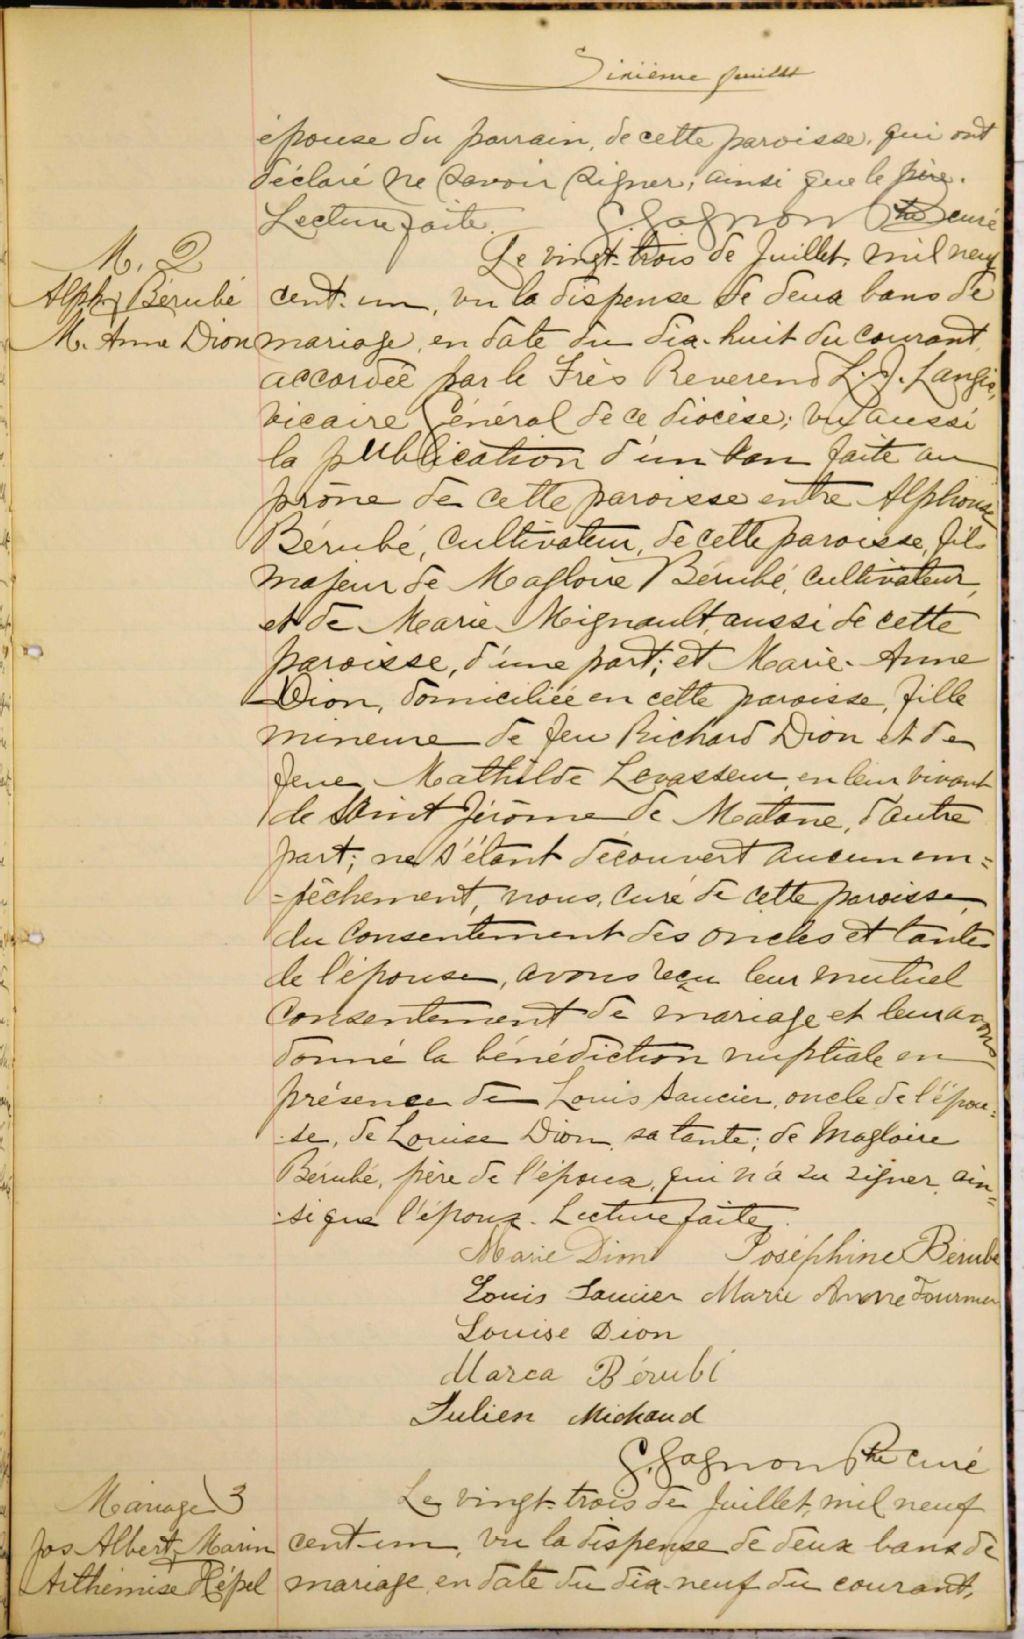 Sixième feuillet
épouse du parrain, de cette paroisse, qui ont
déclaré ne savoir signer, ainsi que le père.
Lecture faite. G. Gagnon Ptre curé
M. 2
Alph. Bérubé
M. Anne Dion
Le vingt-trois de Juillet, mil neuf
cent-un, vu la dispense de deux bans de
mariage, en date du dix-huit du courant,
accordée par le Très Reverend L. J. Langis,
vicaire Général de ce diocèse; vu aussi
la publication d'un ban faite au
prône de cette paroisse entre Alphonse
Bérubé, cultivateur, de cette paroisse, fils
majeur de Magloire Bérubé, cultivateur,
et de Marie Mignault, aussi de cette
paroisse, d'une part; et Marie-Anne
Dion, domiciliée en cette paroisse, fille
mineure de feu Richard Dion et de
feue Mathilde Levasseur, en leur vivant
de Saint Jérôme de Matane, d'autre
part; ne s'étant découvert aucun em=
-pêchement, nous, curé de cette paroisse,
du consentement des oncles et tantes
de l'épouse, avons reçu leur mutuel
consentement de mariage et leur avons
donné la bénédiction nuptiale en
présence de Louis Saucier, oncle de l'épou=
-se, de Louise Dion, sa tante; de Magloire
Bérubé, père de l'époux, qui n'a su signer, ain=
-si que l'époux. Lecture faite.
Marie Dion Joséphine Bérubé
Louis Saucier Marie Anne Fournier
Louise Dion
Marea Bérubé
Julien Michaud
G. Gagnon Ptre curé
Mariage 3
Jos Albert Marin
Arthémise Hépel
Le vingt-trois de Juillet, mil neuf
cent-un, vu la dispense de deux bans de
mariage, en date du dix-neuf du courant,